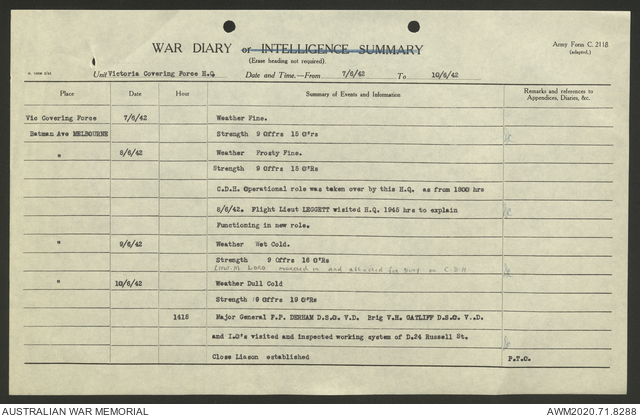 WAR DIARY or INTELLIGENCE SUMMARY
(Erase heading not required).
Army Form C. 2118
(adapted.)
Unit Victoria Covering Force H.Q Date and Time.—From 7/6/42 To 10/6/42
Place Date Hour Summary of Events and Information Remarks and references to
Appendices, Diaries, &c.
Vic Covering Force 7/6/42 Weather Fine.
Batman Ave MELBOURNE Strength 9 Offrs 15 O'rs
" 8/6/42 Weather Frosty Fine.
Strength 9 Offrs 15 O'Rs
C.D.H. Operational role was taken over by this H.Q. as from 1800 hrs
8/6/42. Flight Lieut LEGGETT visited H.Q. 1945 hrs to explain
Functioning in new role.
" 9/6/42 Weather Wet Cold.
Strength 9 Offrs 16 O'Rs
marched in and allotted for duty on C.D.H
" 10/6/42 Weather Dull Cold
Strength 9 Offrs 19 O'Rs
1415 Major General F.P. DERHAM D.S.O. V.D. Brig V.H. GATLIFF D.S.O. V.D.
and I.O's visited and inspected working system of D.24 Russell St.
Close Liason established P.T.O.
AUSTRALIAN WAR MEMORIAL AWM2020.71.8288